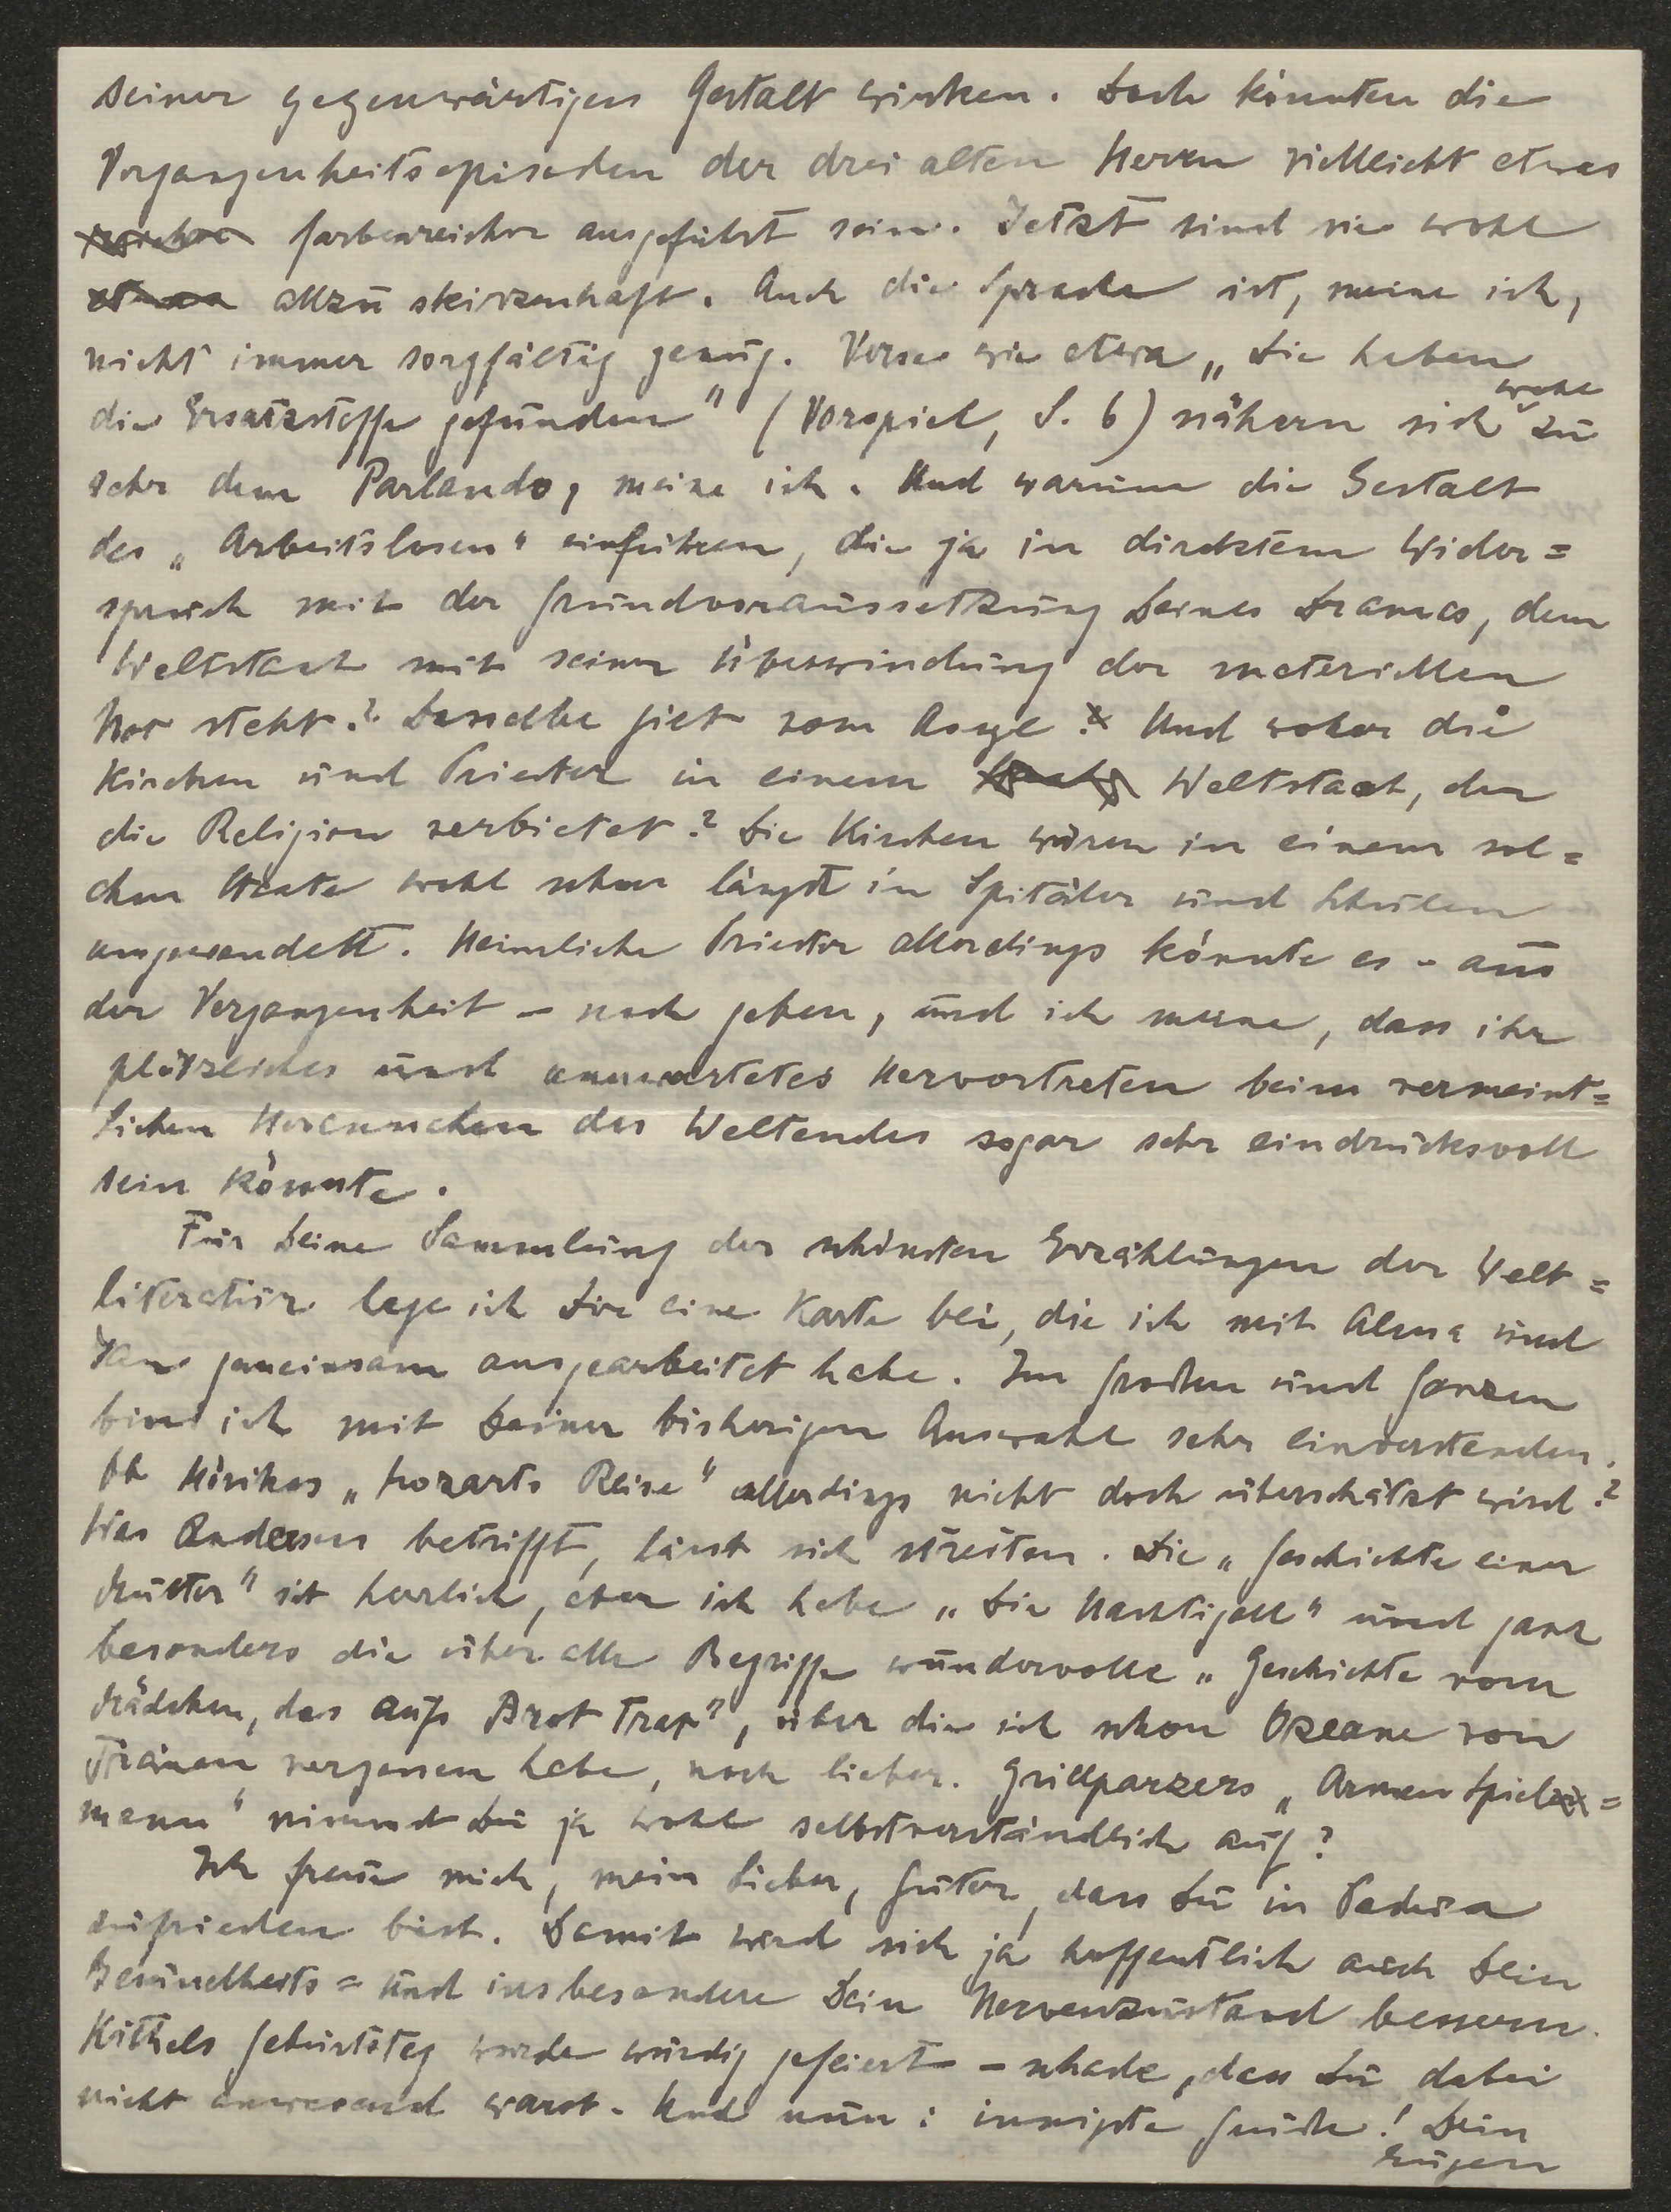 seiner gegenwärtigen Gestalt wirken. Doch könnten die
Vergangenheitsepisoden der drei alten Herrn vielleicht etwas
farbenreicher ausgeführt sein. Jetzt sind sie wohl
allzu skizzenhaft. Auch die Sprache ist, meine ich,
nicht immer sorgfältig genug. Verse wie etwa „Die haben
die Ersatzstoffe gefunden" (Vorspiel, S. 6) nähern sich wohl zu
sehr dem Parlando, meine ich. Und warum die Gestalt
des „Arbeitslosen" einführen, die ja in direktem Wider=
spruch mit der Grundvoraussetzung Deines Dramas, dem
Weltstaat mit seiner Überwindung der materiellen
Not steht? Dasselbe gilt vom Asyl. Und woher die
Kirchen und Priester in einem Weltstaat, der
die Religion verbietet? Die Kirchen wären in einem sol=
chen Staate wohl schon längst in Spitäler und Schulen
umgewandelt. Heimliche Priester allerdings könnte es – aus
der Vergangenheit – noch geben, und ich meine, dass ihr
plötzliches und unerwartetes Hervortreten beim vermeint=
lichen Herannahen des Weltendes sogar sehr eindrucksvoll
sein könnte.
Für Deine Sammlung der schönsten Erzählungen der Welt=
literatur lege ich Dir eine Karte bei, die ich mit Alma und
Jan gemeinsam ausgearbeitet habe. Im Großen und Ganzen
bin ich mit Deiner bisherigen Auswahl sehr einverstanden.
Ob Mörikes „Mozarts Reise" allerdings nicht doch überschätzt wird?
Was Andersen betrifft, lässt sich streiten. Die „Geschichte einer
Mutter" ist herrlich, aber ich habe „Die Nachtigall" und ganz
besonders die über alle Begriffe wundervolle „Geschichte vom
Mädchen, das aufs Brot trat", über die ich schon Ozeane von
Tränen vergossen habe, noch lieber. Grillparzers „Armen Spiel=
mann" nimmst Du ja wohl selbstverständlich auf?
Ich freue mich, mein Lieber, Guter, dass Du in Padua
zufrieden bist. Damit wird sich ja hoffentlich auch Dein
Gesundheits= und insbesondere Dein Nervenzustand bessern.
Kithels Geburtstag wurde würdig gefeiert – schade, dass Du dabei
nicht anwesend warst. Und nun: innigste Grüße! Dein
Eugen